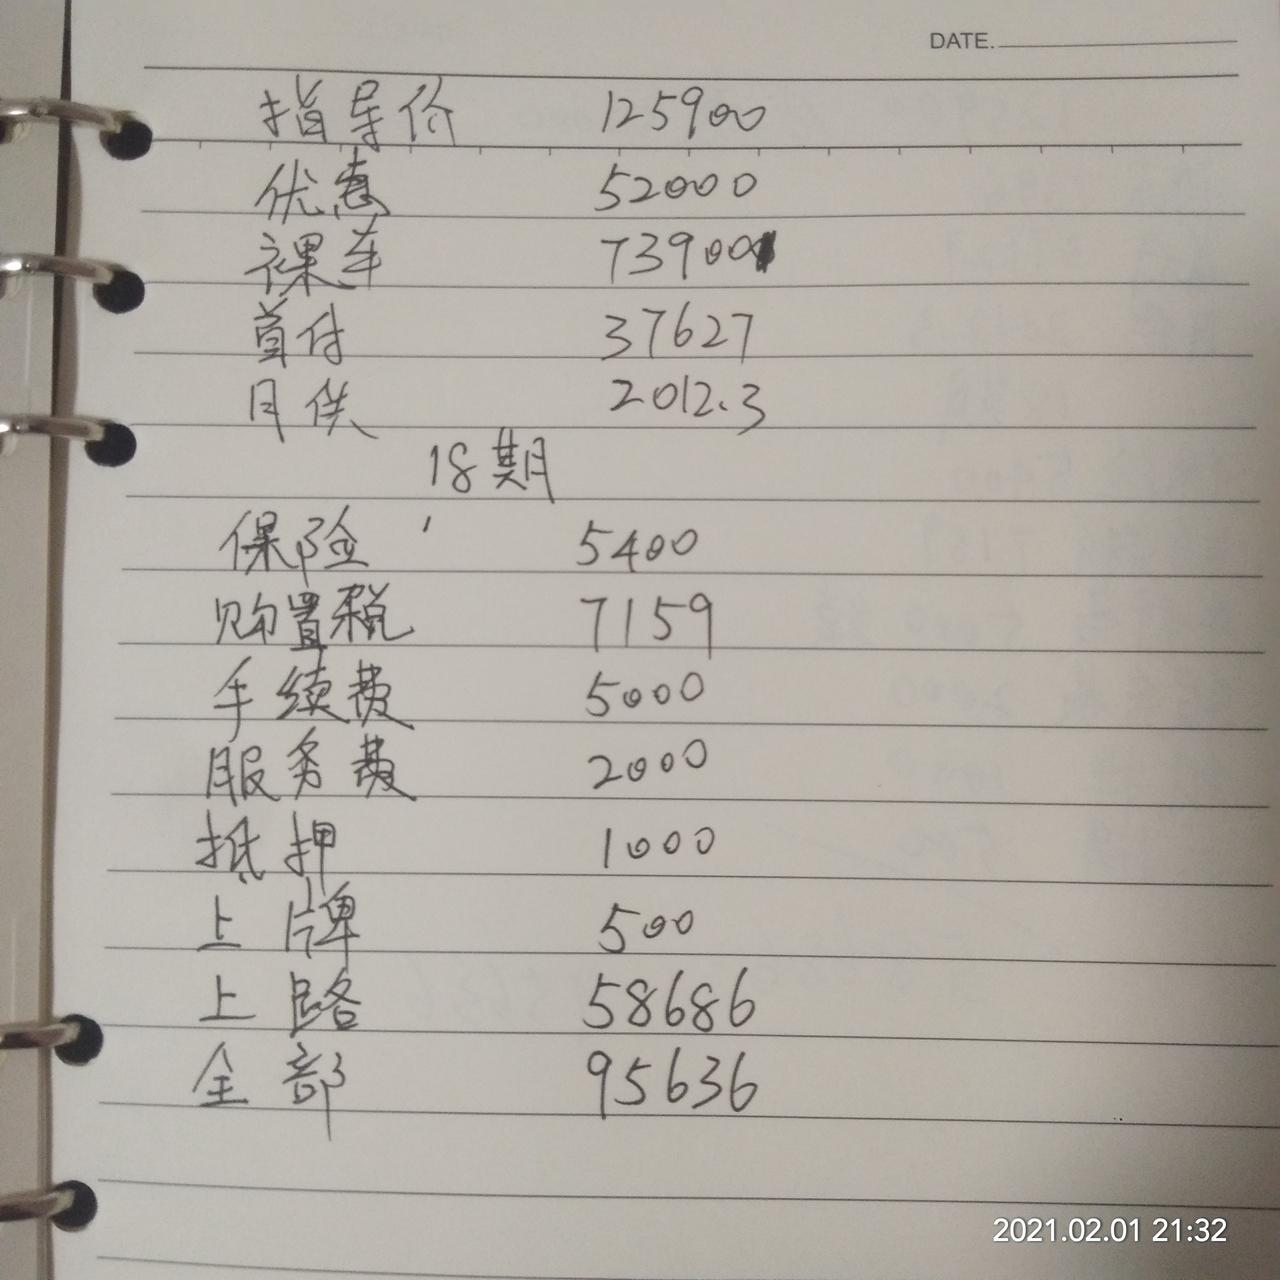 DATE.
指导价 125900
优惠 52000
裸车 73900
首付 37627
月供 2012.3
18期
保险 5400
购置税 7159
手续费 5000
服务费 2000
抵押 1000
上牌 500
上路 58686
全部 95636
2021.02.01 21:32